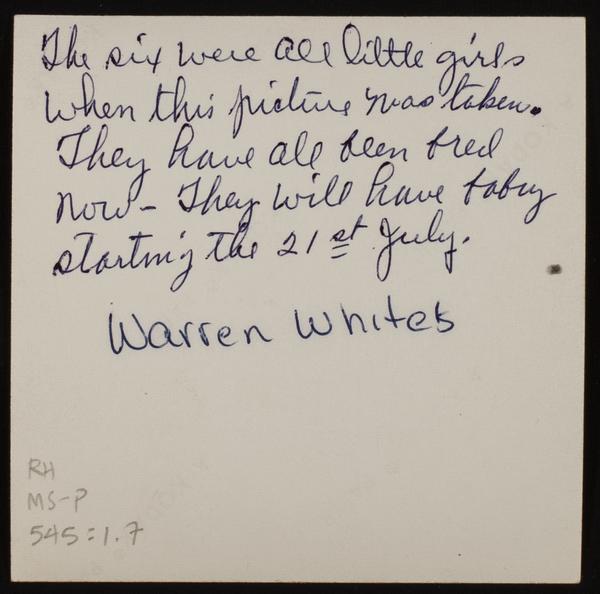 The six were all little girls
when this picture was taken.
They have all been bred
now - They will have baby
starting the 21st July.
Warren Whites
RH
MS-P
545:1.7